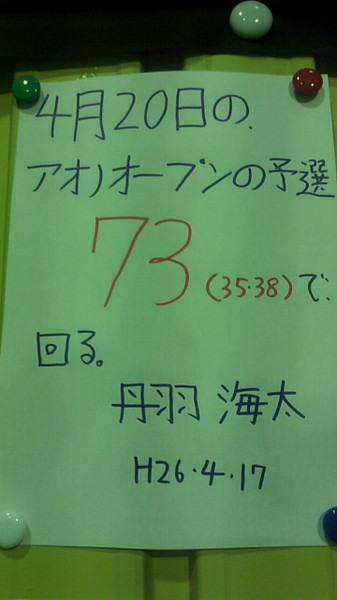 4月20日の、
アオノオープンの予選
73(35・38)で、
回る。
丹羽 海太
H26・4・17